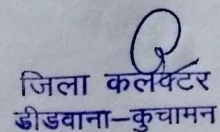 जिला कलेक्टर
डीडवाना–कुचामन